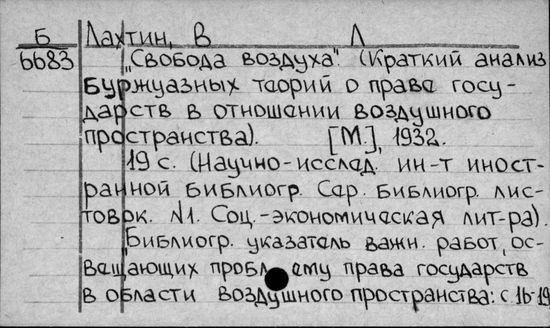 Б Лахтин, В Л
6683 "Свобода воздуха". (Краткий анализ
буржуазных теорий о праве госу-
дарств в отношении воздушного
пространства). [М.], 1932.
19 с. (Научно-исслед. ин-т иност-
ранной библиогр. Сер. библиогр. лис-
товок. N1. Соц.-экономическая лит-ра).
Библиогр. указатель важн. работ, ос-
вещающих проблему права государств
в области воздушного пространства: с 16-19